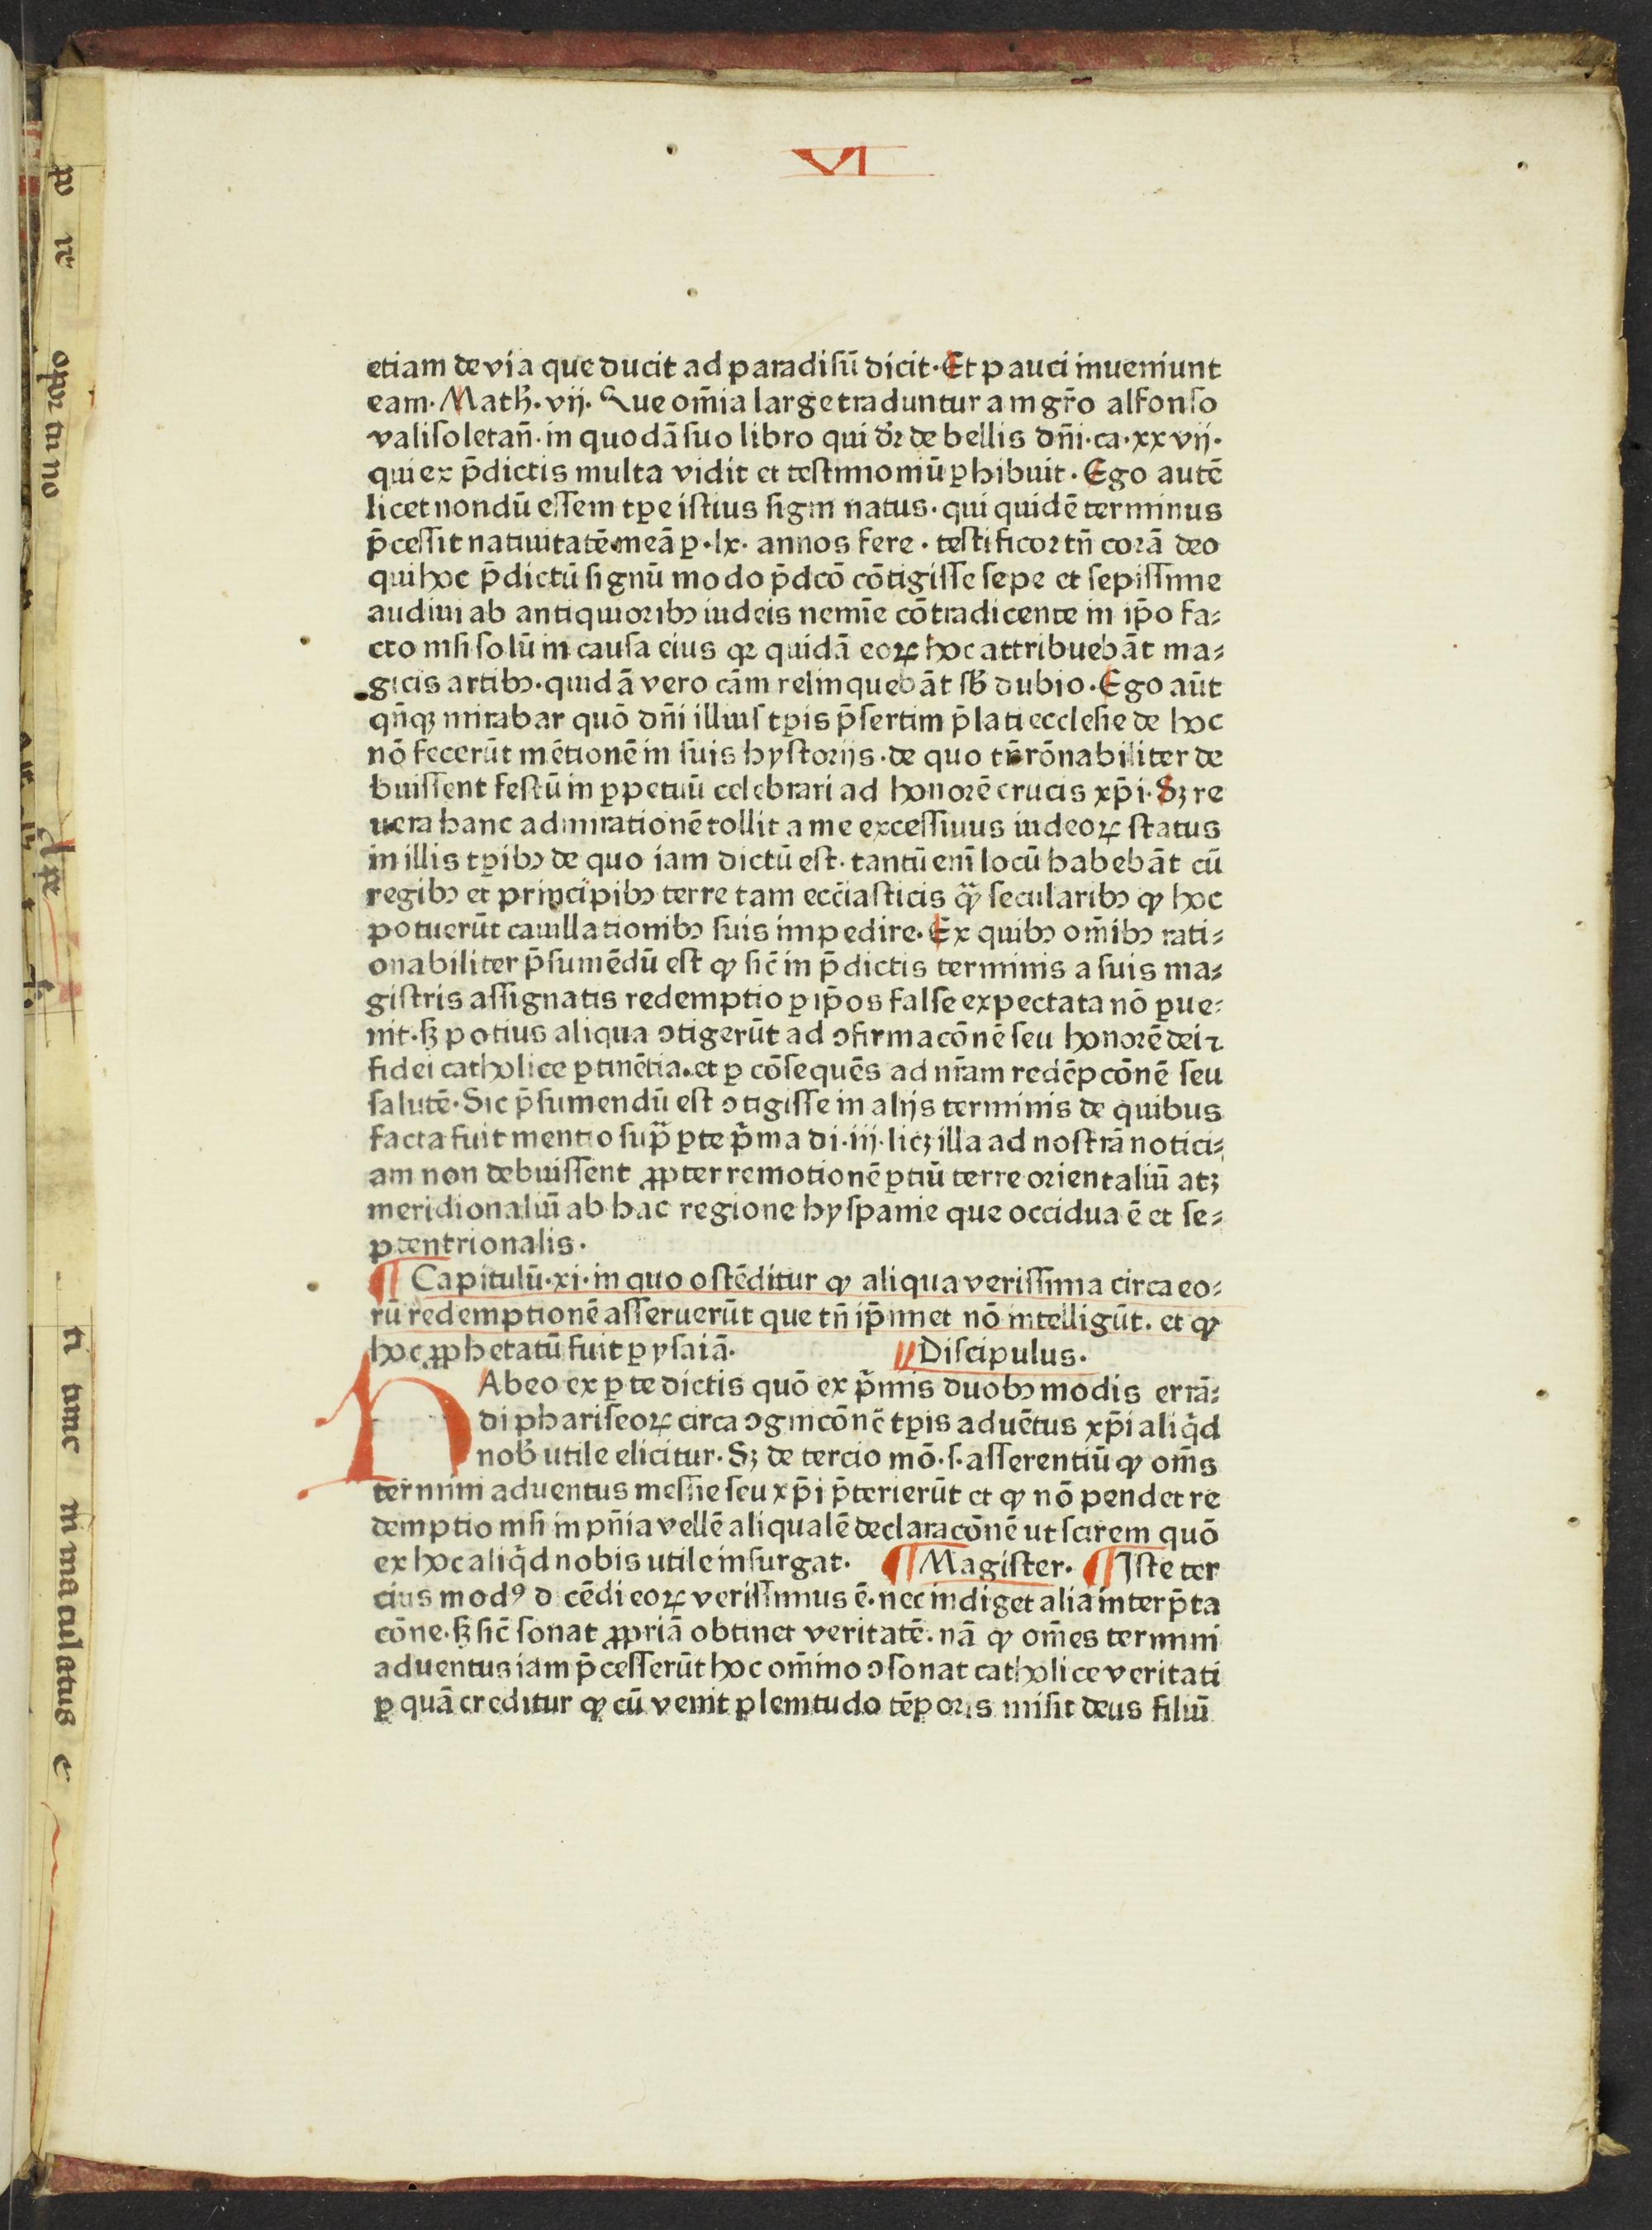 VI
etiam de via que ducit ad paradisū dicit. Et pauci inueniunt
eam. Math̄. vij. Que om̄ia large traduntur a mgr̄o alfonso
valisoletan̄. in quodā suo libro qui dr̄ de bellis dn̄i. ca. xxvij.
qui ex p̄dictis multa vidit et testimoniū ꝑhibuit. Ego autē
licet nondū essem tꝑe istius signi natus. qui quidē terminus
p̄cessit natiuitatē meā ꝑ .lx. annos fere. testificor tn̄ corā deo
qui hoc p̄dictū signū modo p̄dcō cōtigisse sepe et sepissime
audiui ab antiquioribꝰ iudeis nemīe cōtradicente in ip̄o fa⸗
cto nisi solū in causa eius qꝛ quidā eoꝝ hoc attribuebāt ma⸗
gicis artibꝰ. quidā vero cām relinquebāt sb̄ dubio. Ego aūt
qn̄qꝫ mirabar quō dn̄i illius tꝑis p̄sertim p̄lati ecclesie de hoc
nō fecerūt mētionē in suis hystorijs. de quo tn̄ rōnabiliter de
buissent festū in ꝑpetuū celebrari ad honorē crucis xp̄i. Sꝫ re
uera hanc admirationē tollit a me excessiuus iudeoꝝ status
in illis tꝑibꝰ de quo iam dictū est. tantū enī locū habebāt cū
regibꝰ et principibꝰ terre tam ecc̄iasticis qᷓ secularibꝰ ꝙ hoc
potuerūt cauillationibꝰ suis impedire. Ex quibꝰ om̄ibꝰ rati⸗
onabiliter p̄sumēdū est ꝙ sic̄ in p̄dictis terminis a suis ma⸗
gistris assignatis redemptio ꝑ ip̄os false expectata nō ꝑue⸗
nit. sꝫ potius aliqua ꝯtigerūt ad ꝯfirmacōnē seu honorē dei ⁊
fidei catholice ꝑtinētia. et ꝑ cōsequēs ad nr̄am redēpcōnē seu
salutē. Sic p̄sumendū est ꝯtigisse in alijs terminis de quibus
facta fuit mentio supᷓ ꝑte p̄ma di. iij. licꝫ illa ad nostrā notici⸗
am non debuissent ꝓpter remotionē ꝑtiū terre orientaliū atꝫ
meridionaliū ab hac regione hyspanie que occidua ē et se⸗
ptentrionalis.
¶ Capitulū. xi. in quo ostēditur ꝙ aliqua verissima circa eo⸗
rū redemptionē asseruerūt que tn̄ ip̄imet nō intelligūt. et ꝙ
hoc ꝓphetatū fuit ꝑ ysaiā. Discipulus.
HAbeo ex ꝑte dictis quō ex p̄mis duobꝰ modis errā⸗
di phariseoꝝ circa ꝯgnicōnē tꝑis aduētus xp̄i aliqͥd
nob̄ utile elicitur. Sꝫ de tercio mō. s. asserentiū ꝙ om̄s
termini aduentus messie seu xp̄i p̄terierūt et ꝙ nō pendet re
demptio nisi in pn̄ia vellē aliqualē declaracōnē ut scirem quō
ex hoc aliqͥd nobis utile insurgat. ¶ Magister. ¶ Iste ter
cius modꝰ dicēdi eoꝝ verissimus ē. nec indiget alia interp̄ta
cōne. sꝫ sic̄ sonat ꝓpriā obtinet veritatē. nā ꝙ om̄es termini
aduentus iam p̄cesserūt hoc om̄ino ꝯsonat catholice veritati
ꝑ quā creditur ꝙ cū venit plenitudo tēporis misit deus filiū